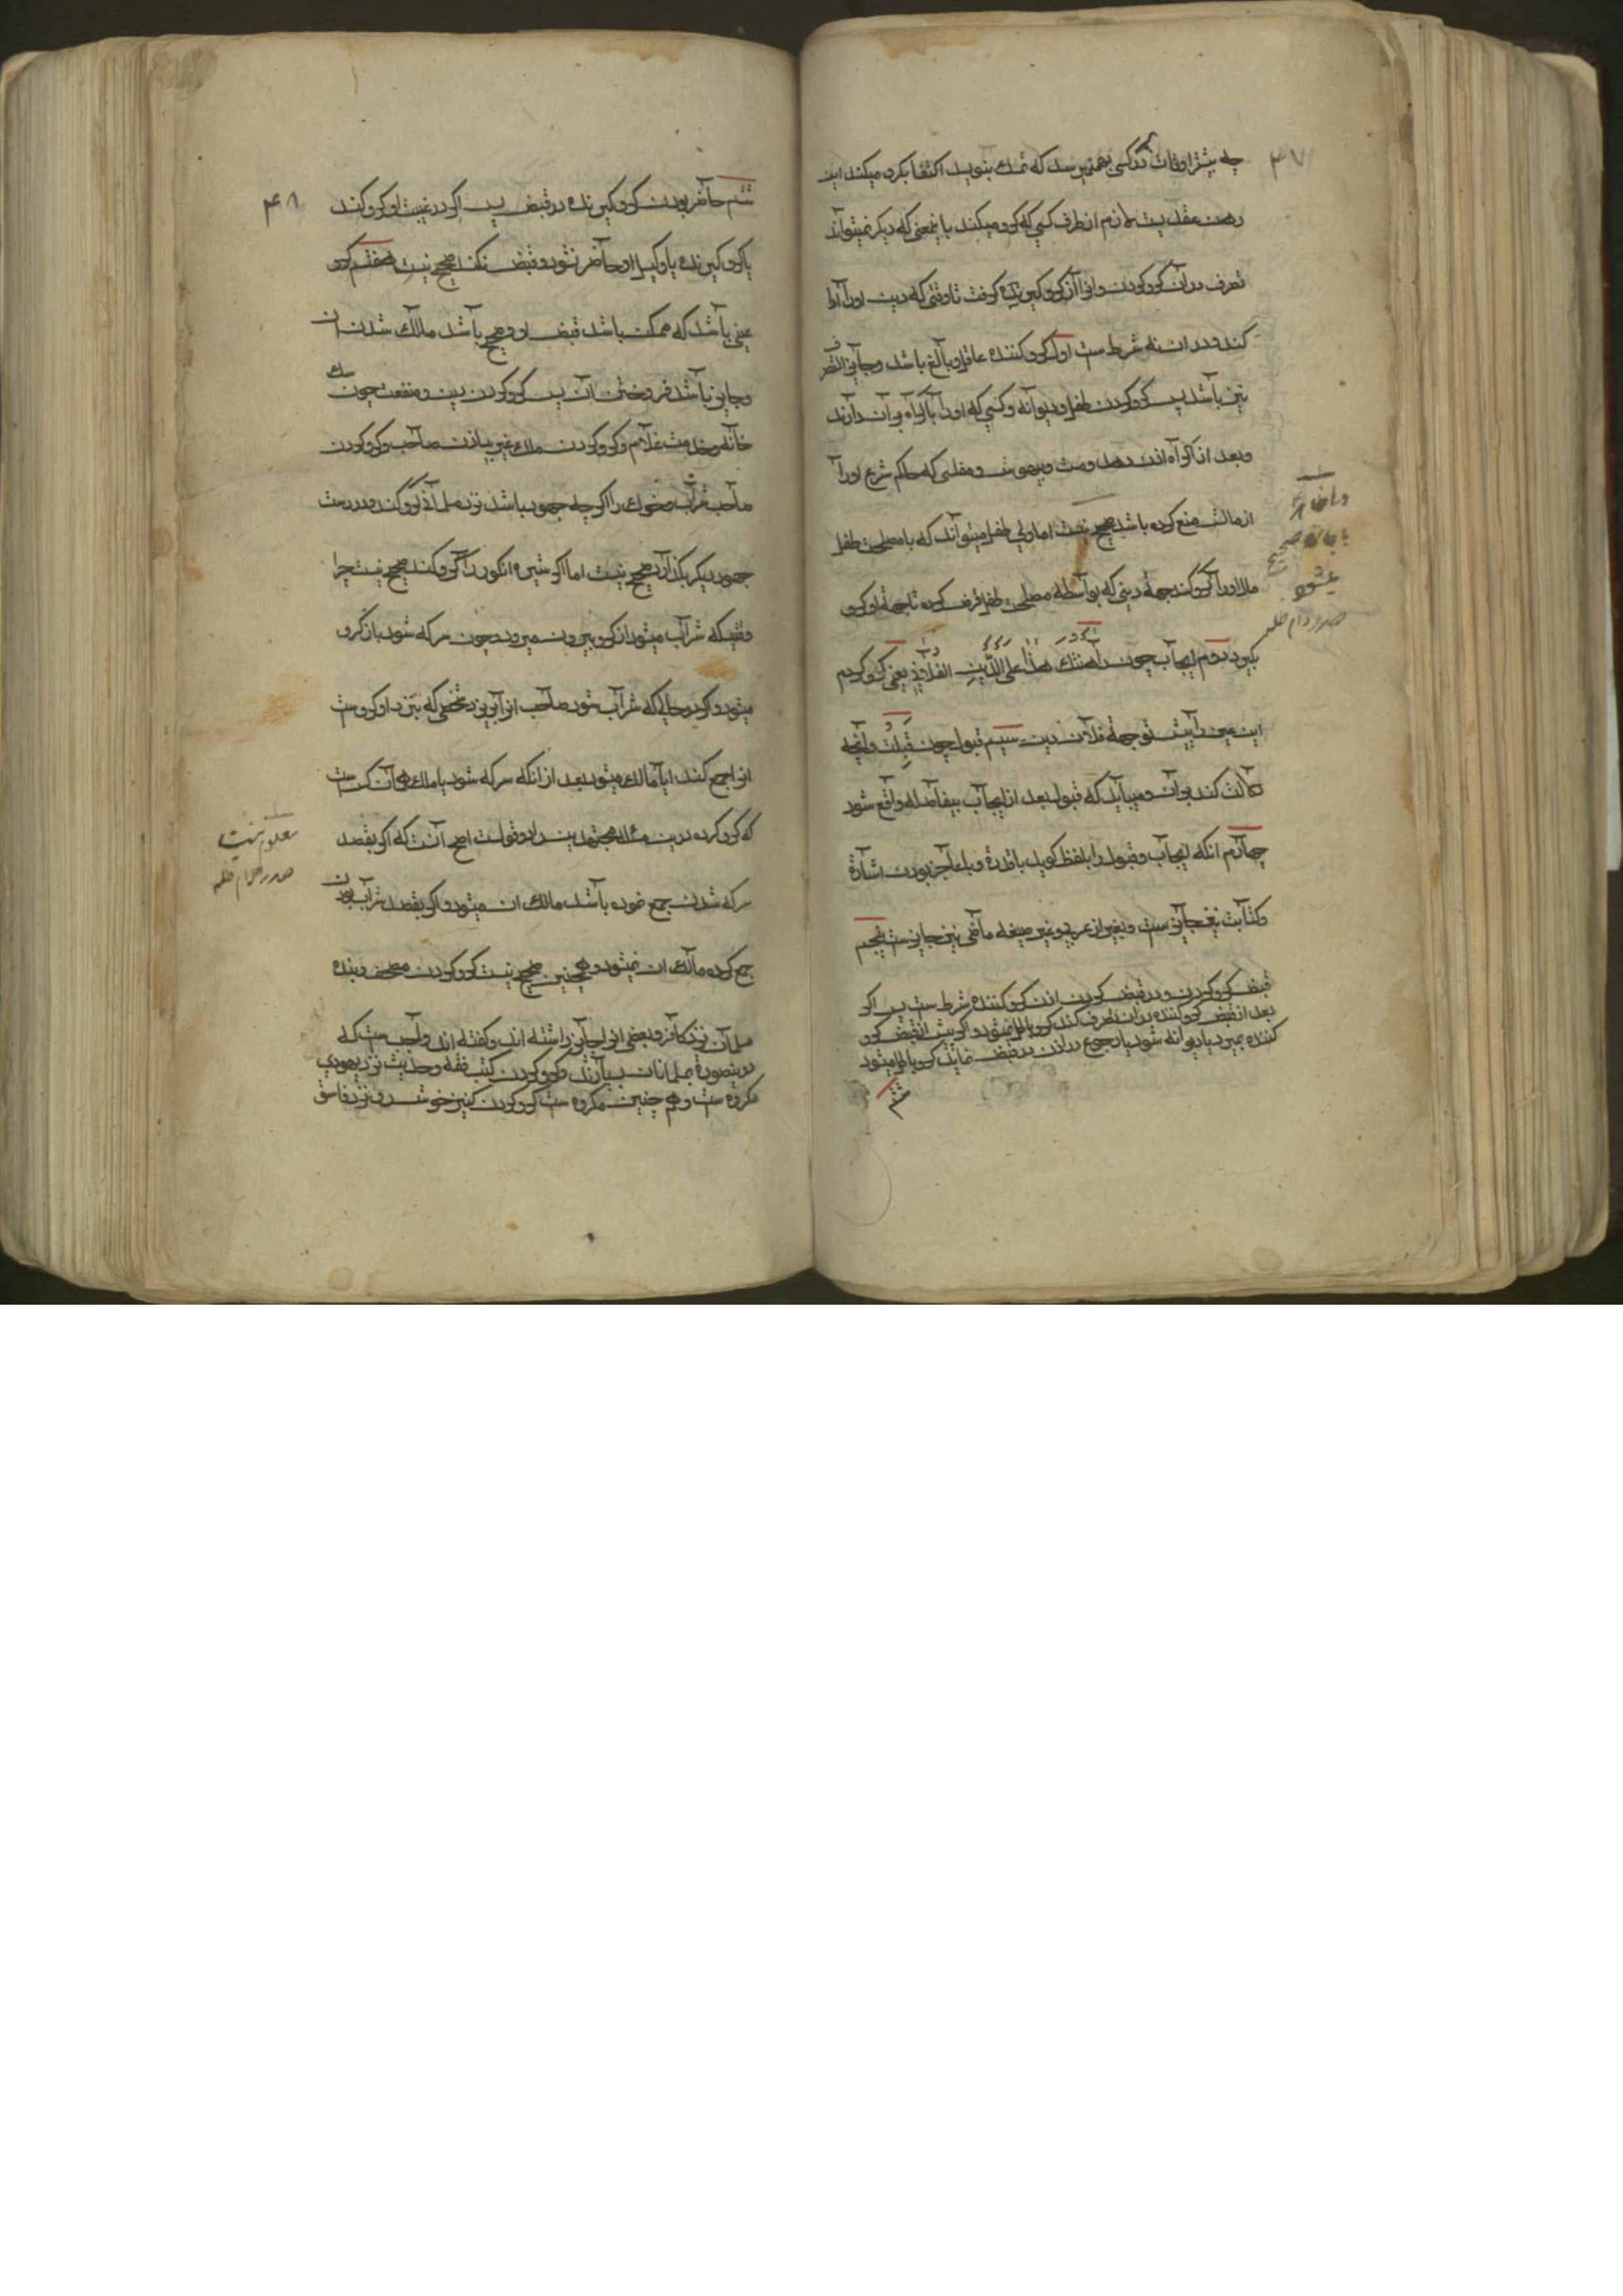 ۴۷
چه بیشتر اوقات در کسی بهم نمیرسد که تمسک بنویسد اکتفا بگرو میکند این
رهن عقدیست لازم از طرف کسی که گرو میکند باینمعنی که دیگر نمیتواند
تصرف در آن گرو کردن و او را از گرو گیرنده گرفت تا وقتی که دین او را ادا
کند و در آن نه شرط ست اول گرو کننده عاقل و بالغ باشد و جایز التصرف
نیز باشد پس گرو کردن طفل و دیوانه و کسی که او را باکراه بر آن دارند
و بعد از اکراه اذن ندهد و مست و بیهوش و مفلسی که حاکم شرع او را
از مالش منع کرده باشد صحیح نیست اما ولی طفل میتواند که با مصلحت طفل
مال او را گرو کند بجهة دینی که بواسطه مصلحت طفل قرض کرده تا بجهة او گرو
بگیرد دویم ایجاب چون رهنتك هذا علی الدین الفلانی یعنی گرو کردم
این عین را پیش تو بجهة فلان دین سیم قبول چون قبلت و آنچه
دلالت کند بر آن و میباید که قبول بعد از ایجاب بیفاصله واقع شود
چهارم انکه ایجاب و قبول را بلفظ گوید با قدرة و با عاجز بودن اشارة
و کتابت نیز جایز ست و بغیر از عربی و غیر صیغه ماضی نیز جایز ست پنجم
قبض گرو کردن و در قبض کردن اذن گرو کننده شرط ست پس اگر
بعد از قبض گرو کننده در آن تصرف کند گرو باطل نمیشود و اگر پیش از قبض گرو
کننده بمیرد یا دیوانه شود یا رجوع در اذن در قبض نماید گرو باطل میشود
ششم
باجازه صحیح
میشود
صدر دام ظله
۴۸
ششم حاضر بودن گرو گیرنده در قبض پس اگر در غیبت او گرو کند
یا گرو گیرنده یا وکیل او حاضر نشود و قبض نکند صحیح نیست هفتم گرو
عینی باشد که ممکن باشد قبض او و صحیح باشد مالک شدن آن
و جایز باشد فروختن آن پس گرو کردن دین و منفعت چون سکنای
خانه و خدمت غلام و گرو کردن ملک غیر بی اذن صاحب و گرو کردن
صاحب شراب و خوک را اگر چه جهود باشد نزد مسلمانان گرو کند و در دست
جهود دیگر بگذارد صحیح نیست اما اگر شیره انگور را گرو کند صحیح نیست چرا
وقتیکه شراب میشود از گرو بیرون میرود و چون سرکه شود باز گرو
میشود و اگر در حالی که شراب شود صاحب او را بریزد شخصی که نزد او گروست
او را جمع کند ایا مالک میشود بعد از انکه سرکه شود یا ملک آن کس ست
که گرو کرده درین مسئله مجتهدین را دو قول ست اصح آنست که اگر بقصد
سرکه شدن جمع نموده باشد مالک ان میشود و اگر بقصد شراب بودن
جمع کرده مالک ان نمیشود و همچنین صحیح نیست گرو کردن مصحف و بنده
مسلمان نزد کافر و بعضی او را جایز داشته اند و گفته اند واجب ست که
در ینصورة بمسلمانان بسپارند و گرو کردن کتب فقه و حدیث نزد یهودی
مکروه ست و هم چنین مکروه ست گرو کردن کنیز خوش رو نزد فاسق
معلوم نیست
صدر دام ظله